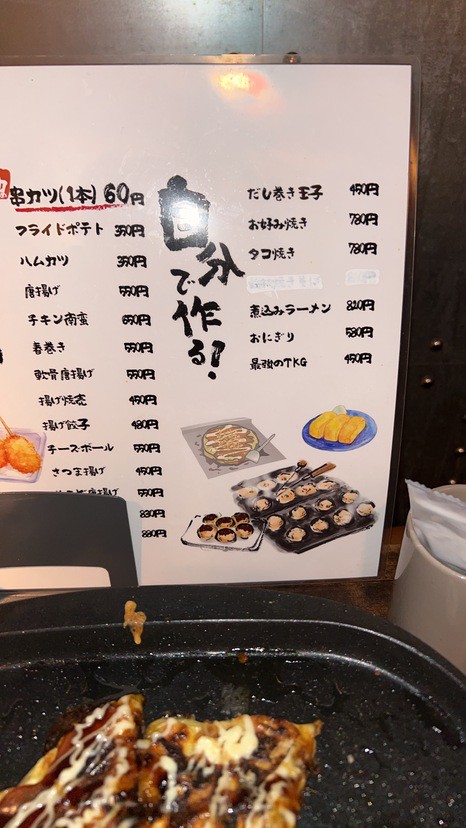 串カツ(1本) 60円
フライドポテト 350円
ハムカツ 350円
唐揚げ 550円
チキン南蛮 650円
春巻き 550円
軟骨唐揚げ 550円
揚げ焼売 450円
揚げ餃子 480円
チーズボール 550円
さつま揚げ 450円
唐揚げ 550円
830円
880円
自分で作る!
だし巻き玉子 450円
お好み焼き 780円
タコ焼き 780円
煮込みラーメン 820円
おにぎり 580円
最強のTKG 450円